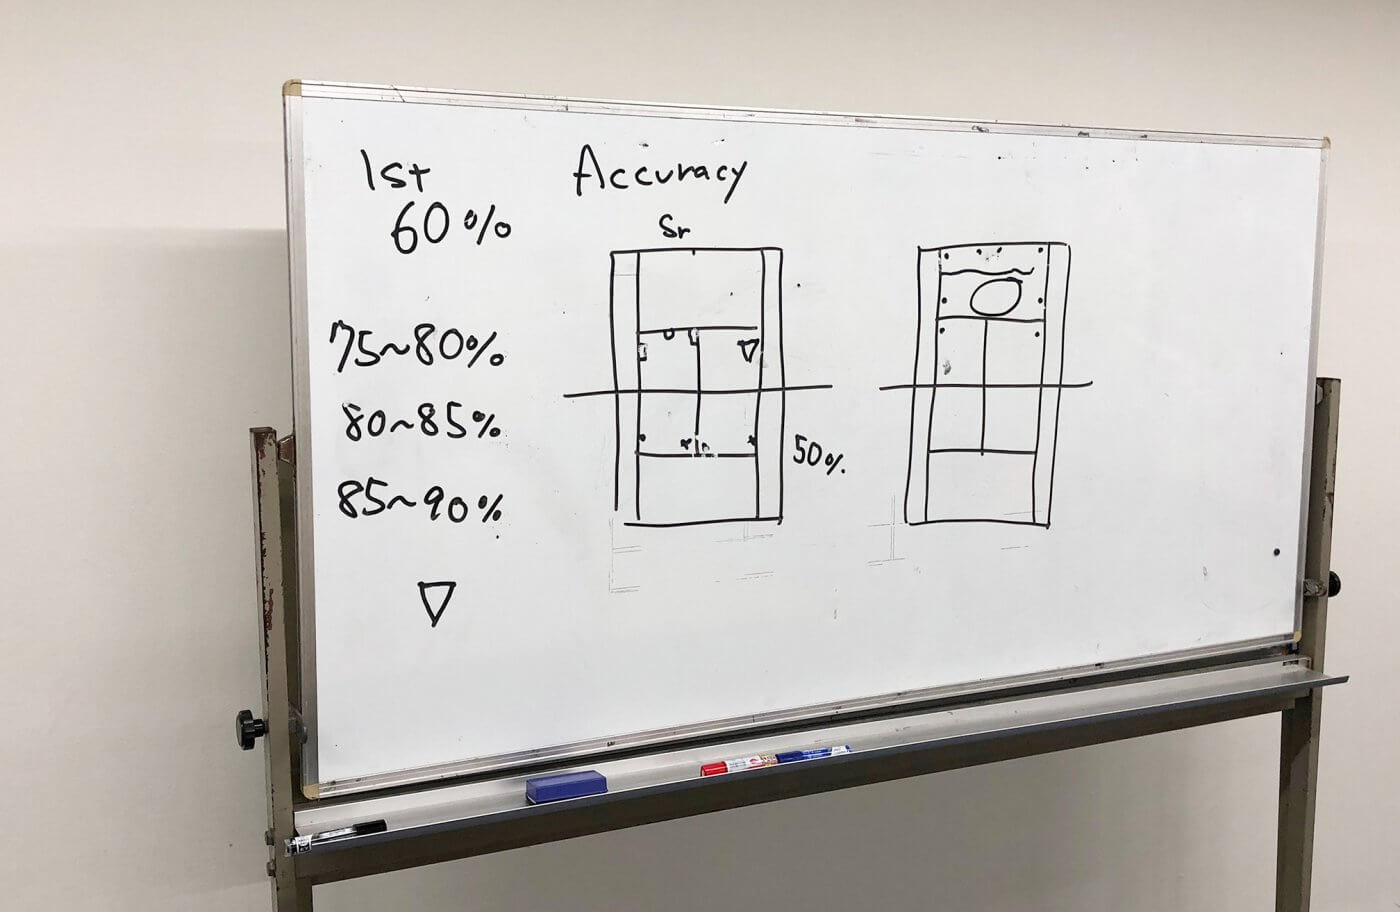 1st
60%
75~80%
80~85%
85~90%
Accuracy
Sr
50%